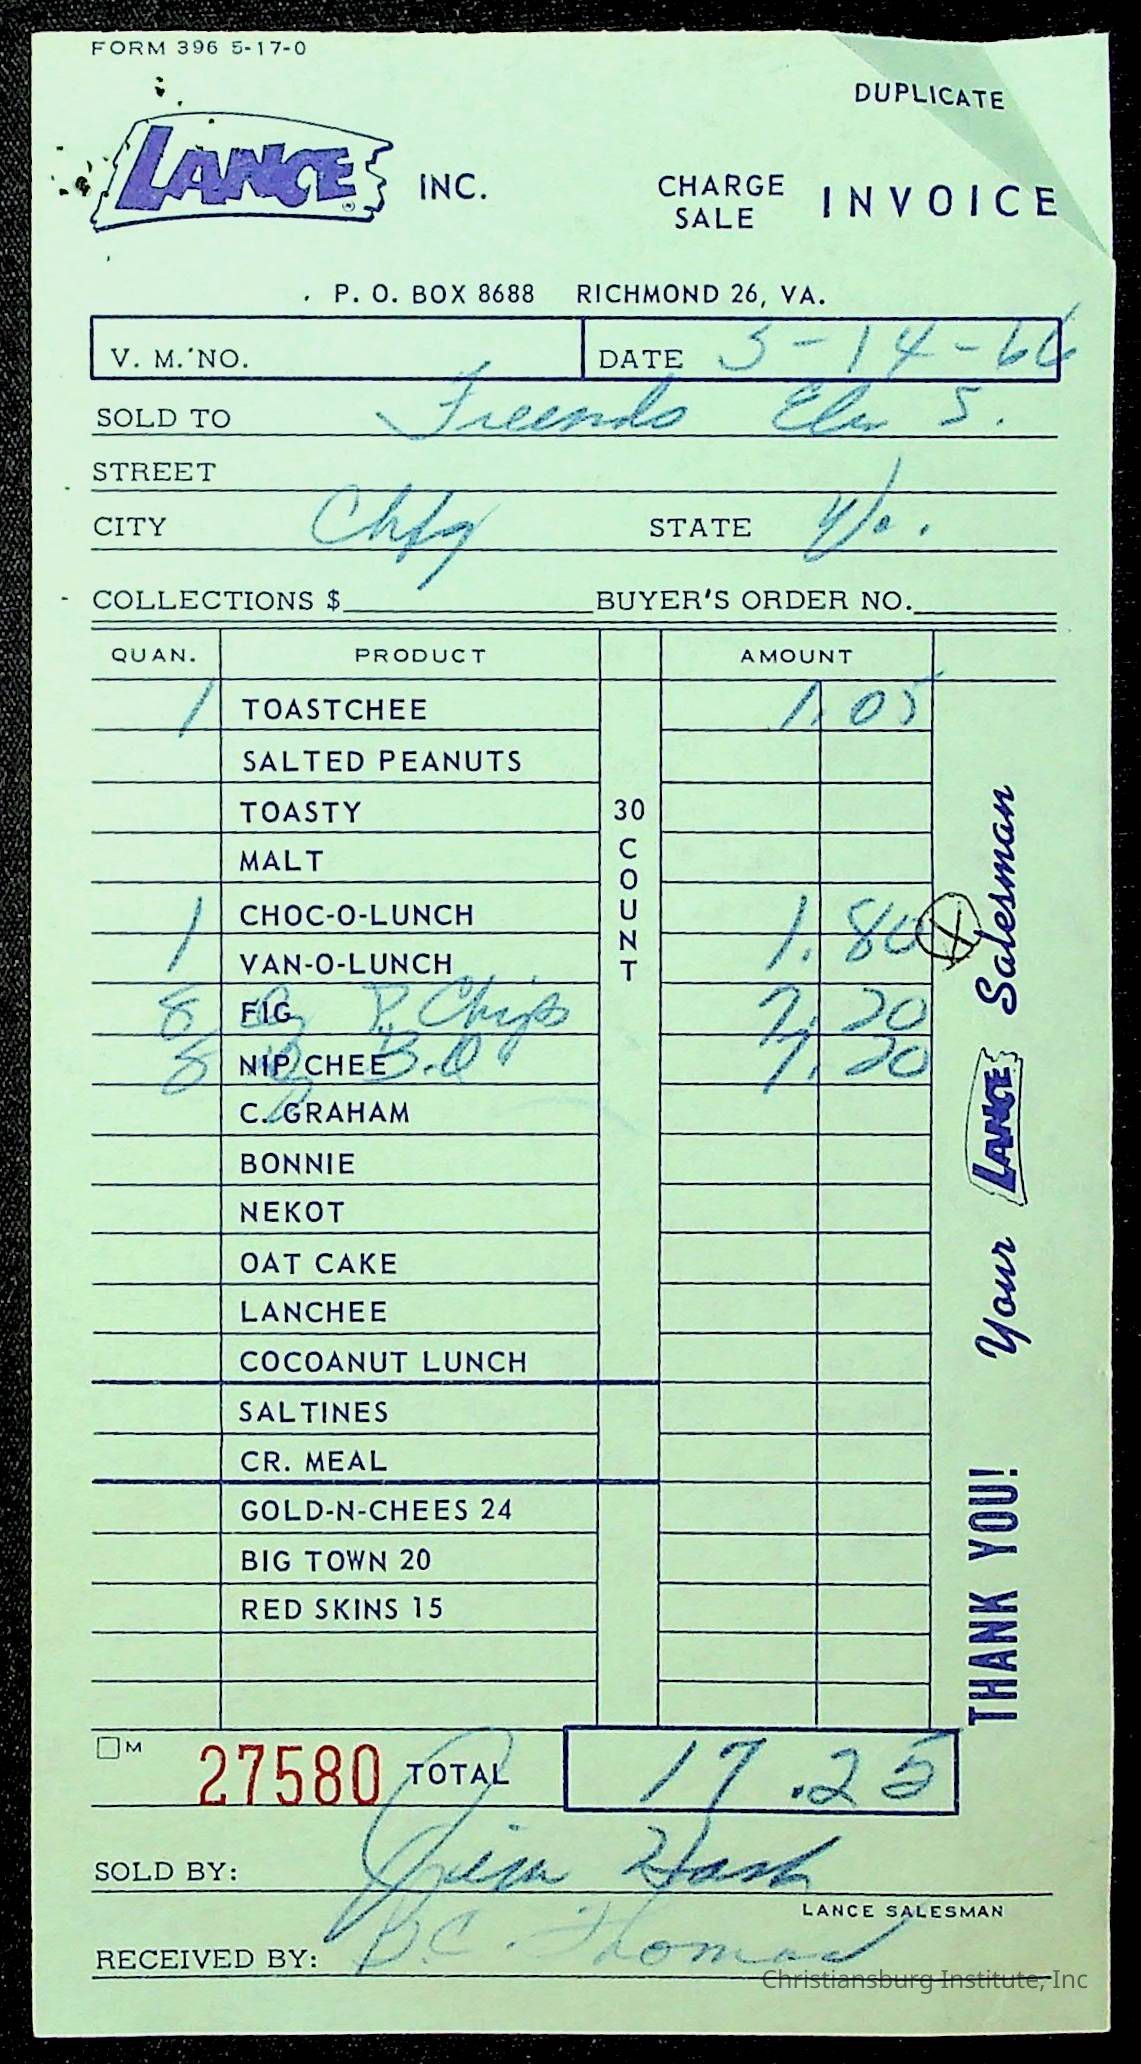 FORM 396 5-17-0
DUPLICATE
LANCE ® INC.
CHARGE SALE INVOICE
P. O. BOX 8688 RICHMOND 26, VA.
V. M. NO. DATE 3-14-66
SOLD TO Friends Elm S.
STREET
CITY Chfg STATE Va.
COLLECTIONS $ BUYER'S ORDER NO.
QUAN. PRODUCT AMOUNT
1 TOASTCHEE 1.05
SALTED PEANUTS
TOASTY
MALT
CHOC-O-LUNCH
1 VAN-O-LUNCH 1.80
8 FIG P. Chips 7.20
8 NIP CHEE B.Q 7.20
C. GRAHAM
BONNIE
NEKOT
OAT CAKE
LANCHEE
COCOANUT LUNCH
SALTINES
CR. MEAL
GOLD-N-CHEES 24
BIG TOWN 20
RED SKINS 15
30 COUNT
Your LANCE Salesman
THANK YOU!
M 27580 TOTAL 17.25
SOLD BY: Jim Hash
LANCE SALESMAN
RECEIVED BY: D.C. Thomas
Christiansburg Institute, Inc